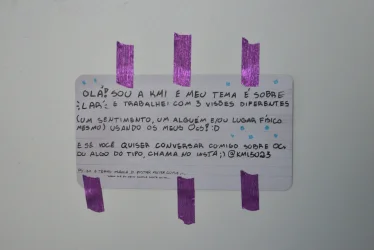 OLÁ! SOU A KMI E MEU TEMA É SOBRE
"LAR" E TRABALHEI COM 3 VISÕES DIFERENTES
(UM SENTIMENTO, UM ALGUÉM E/OU LUGAR FÍSICO
MESMO) USANDO OS MEUS OCs! :D
E SE VOCÊ QUISER CONVERSAR COMIGO SOBRE OCs
OU ALGO DO TIPO, CHAMA NO INSTA ;) @KMISO23